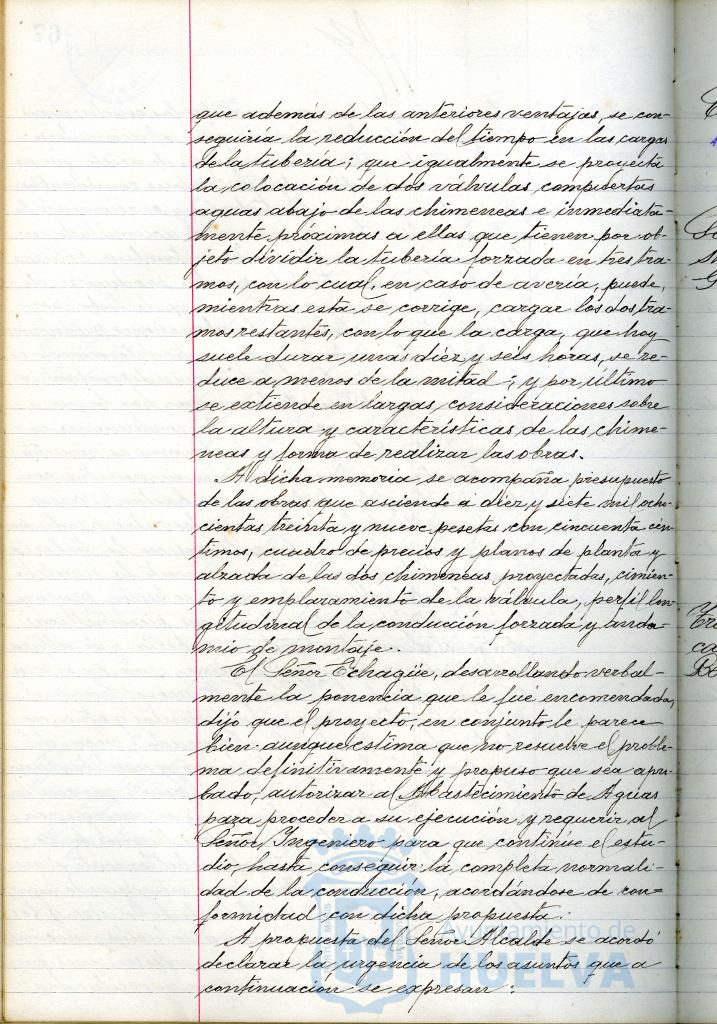 que además de las anteriores ventajas, se con-
seguiría la reducción del tiempo en las cargas
de la tubería; que igualmente se proyecta
la colocación de dos válvulas compuertas
aguas abajo de las chimeneas e inmediata-
mente próximas a ellas que tienen por ob-
jeto dividir la tubería forzada en tres tra-
mos, con lo cual, en caso de avería, puede,
mientras esta se corrige, cargar los dos tra-
mos restantes, con lo que la carga, que hoy
suele durar unas diez y seis horas, se re-
duce a menos de la mitad; y por último
se extiende en largas consideraciones sobre
la altura y características de las chime-
neas y forma de realizar las obras.
A dicha memoria se acompaña presupuesto
de las obras que asciende a diez y siete mil ocho-
cientas treinta y nueve pesetas con cincuenta cén-
timos, cuadro de precios y planos de planta y
alzada de las dos chimeneas proyectadas, cimien-
to y emplazamiento de la válvula, perfil lon-
gitudinal de la conducción forzada y anda-
mio de montaje.
El Señor Echagüe, desarrollando verbal-
mente la ponencia que le fué encomendada,
dijo que el proyecto, en conjunto le parece
bien aunque estima que no resuelve el proble-
ma definitivamente y propuso que sea apro-
bado, autorizar al Abastecimiento de Aguas
para proceder a su ejecución y requerir al
Señor Ingeniero para que continúe el estu-
dio, hasta conseguir la completa normali-
dad de la conducción, acordándose de con-
formidad con dicha propuesta.
A propuesta del Señor Alcalde se acordó
declarar la urgencia de los asuntos que a
continuación se expresan:
Ayuntamiento de
HUELVA